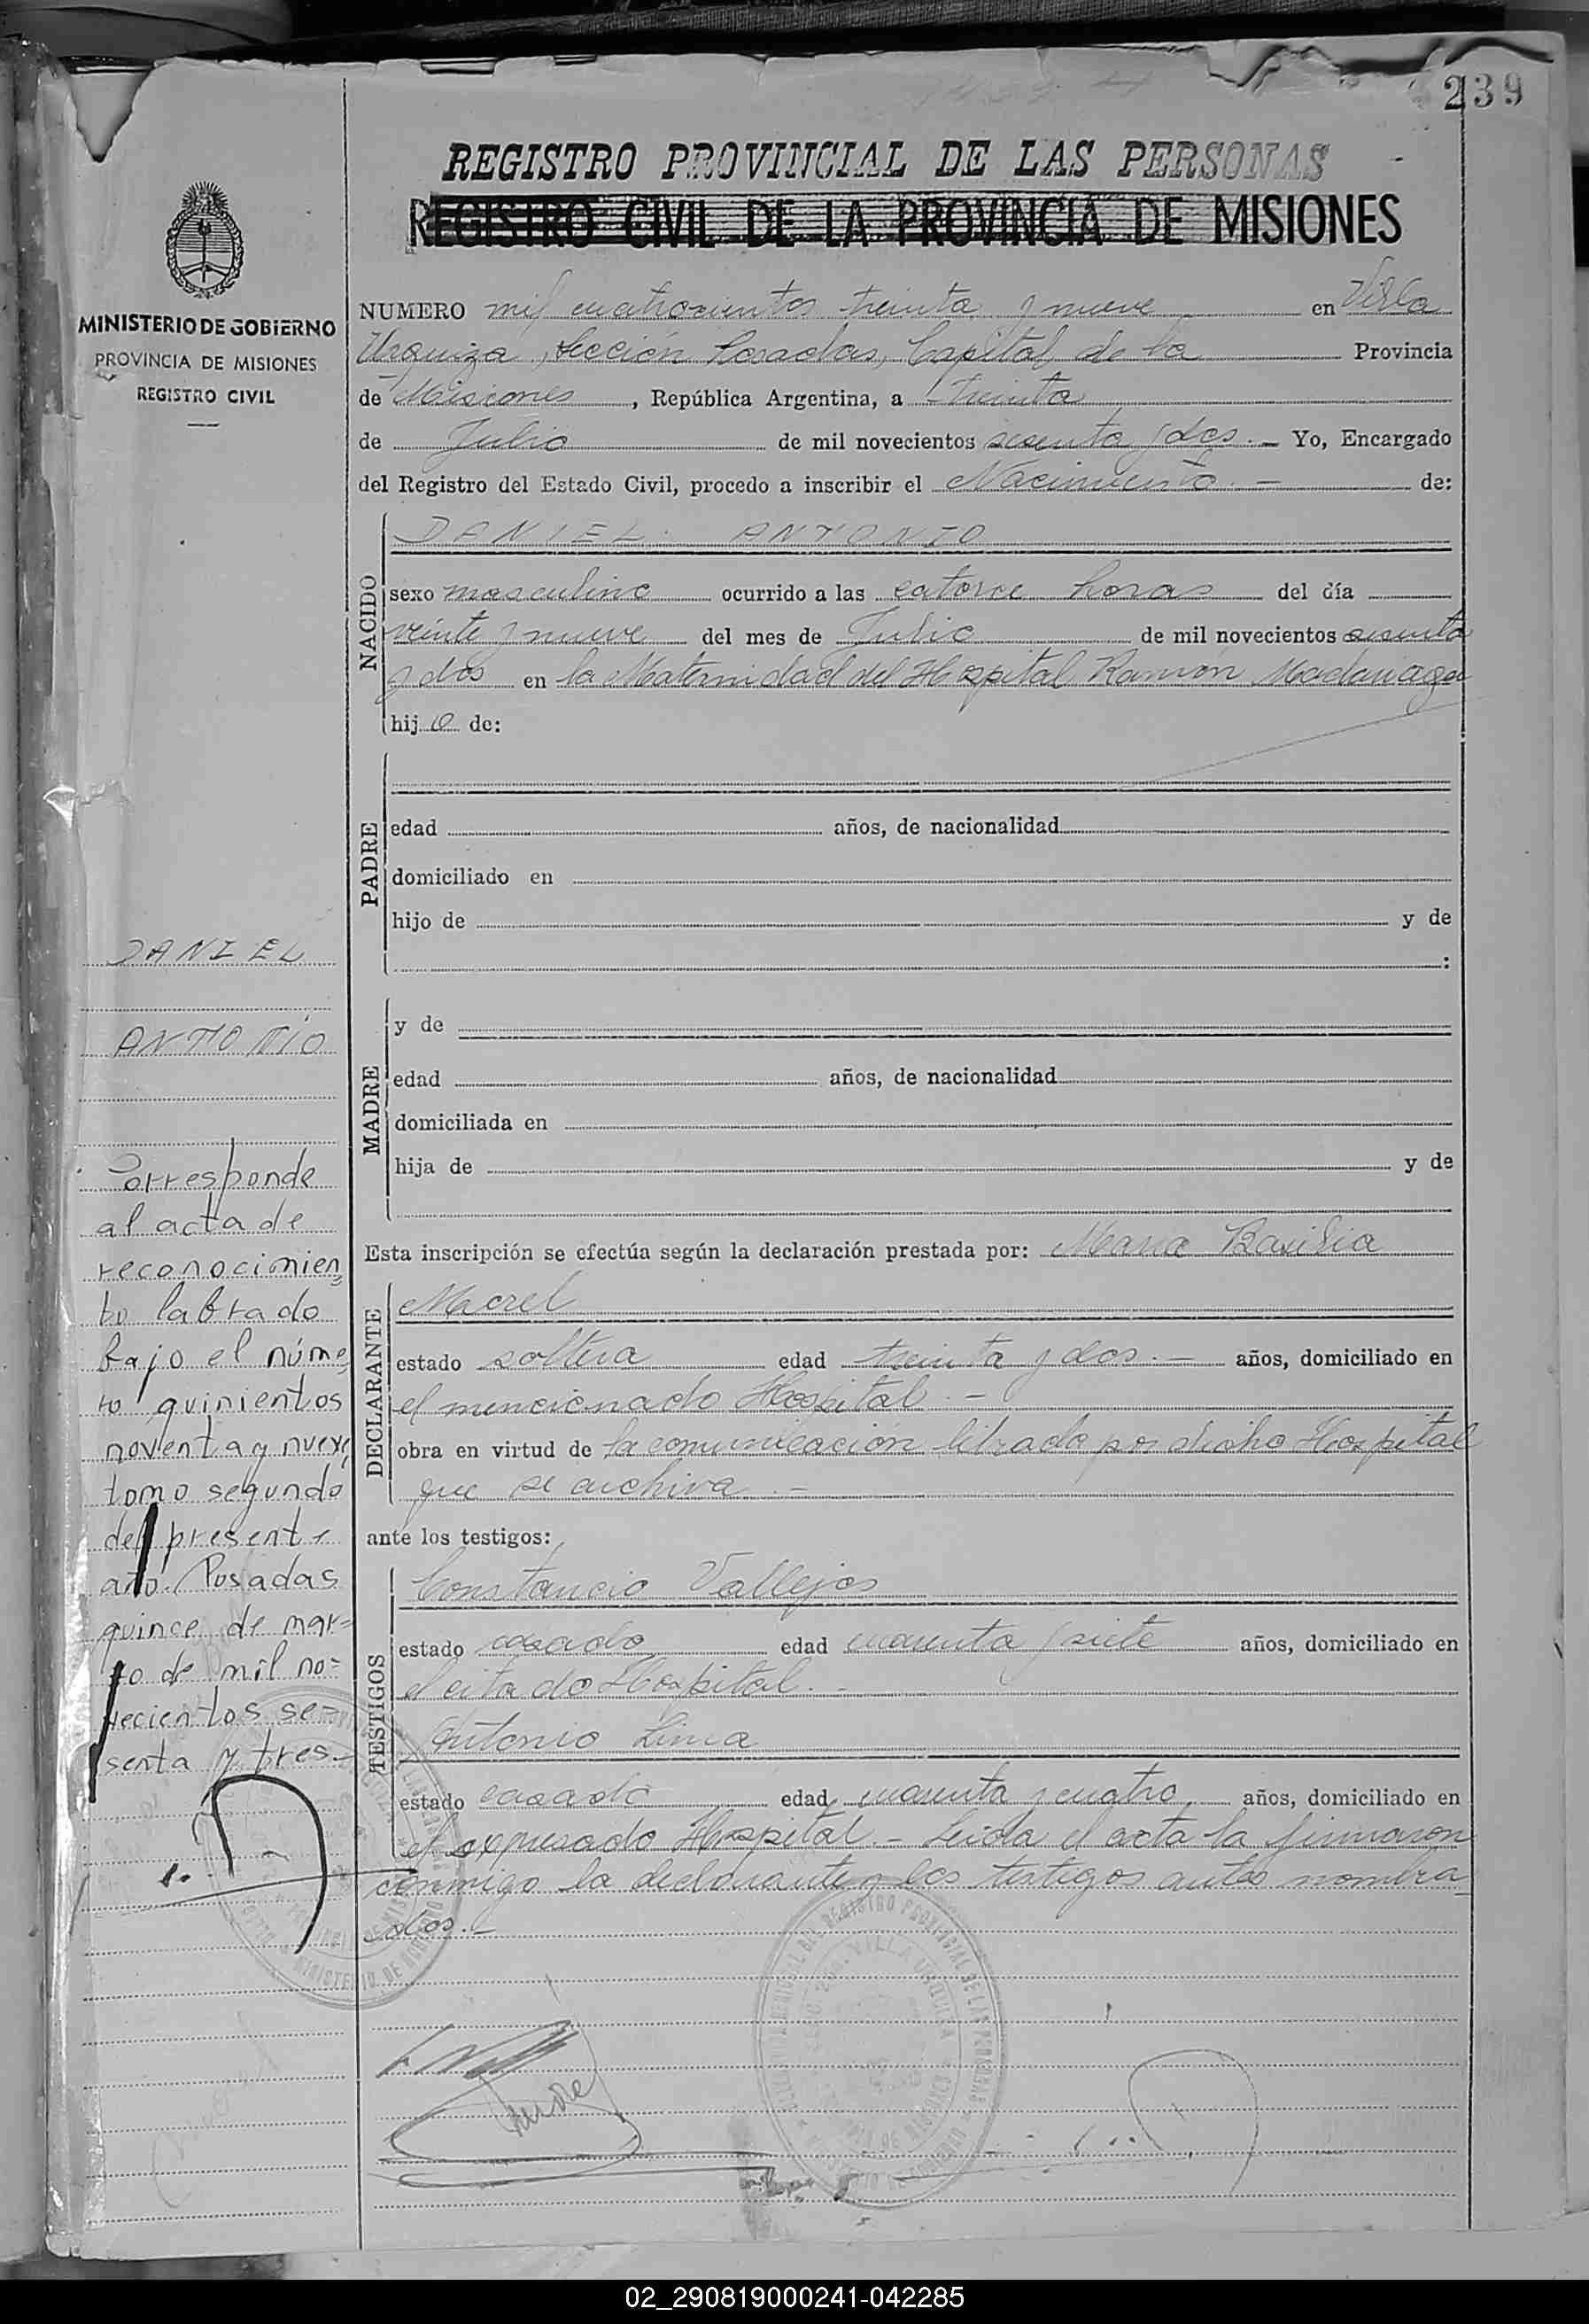 239
REGISTRO PROVINCIAL DE LAS PERSONAS
REGISTRO CIVIL DE LA PROVINCIA DE MISIONES
MINISTERIO DE GOBIERNO
PROVINCIA DE MISIONES
REGISTRO CIVIL
NUMERO mil cuatrocientos treinta y nueve en Villa
Urquiza, Sección Posadas, Capital de la Provincia
de Misiones, República Argentina, a treinta
de Julio de mil novecientos sesenta y dos.— Yo, Encargado
del Registro del Estado Civil, procedo a inscribir el Nacimiento.— de:
NACIDO
DANIEL ANTONIO
sexo masculino ocurrido a las catorce horas del día
veinte y nueve del mes de Julio de mil novecientos sesenta
y dos en la Maternidad del Hospital Ramón Madariaga
hijo de:
PADRE
edad años, de nacionalidad
domiciliado en
hijo de y de
:
MADRE
y de
edad años, de nacionalidad
domiciliada en
hija de y de
Esta inscripción se efectúa según la declaración prestada por: Maria Basilia
DECLARANTE
Maciel
estado soltera edad treinta y dos.— años, domiciliado en
el mencionado Hospital.—
obra en virtud de la comunicación librada por dicho Hospital
que se archiva.—
ante los testigos:
TESTIGOS
Constancio Vallejos
estado casado edad cuarenta y siete años, domiciliado en
el citado Hospital.-
Antonio Lima
estado casado edad cuarenta y cuatro, años, domiciliado en
el expresado Hospital.- Leida el acta la firmaron
conmigo la declarante y los testigos antes nombra
dos.-
DANIEL
ANTONIO
Corresponde
al acta de
reconocimien=
to labrado
bajo el núme=
ro quinientos
noventa y nueve,
tomo segundo
del present e
año. Posadas
quince de mar=
zo de mil no=
vecientos se=
senta y tres.-
02_290819000241-042285